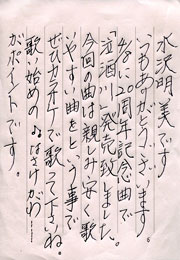 水沢明美です
いつもありがとうございます。
周年記念曲で
酒川」発売致しました。
今回の曲は親み安く歌
いやすい曲をという事で
ぜひカラオケで歌って下さいね。
歌い始めのなさけがわ
がポイントです。